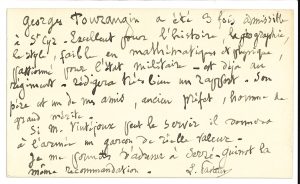 Georges Tourangin a été 3 fois admissible
à St Cyr. Excellent pour l'histoire, la géographie,
le style, faible en mathématiques et physique,
passionné pour l'état militaire - est déjà au
régiment - rédigera très bien un rapport. Son
père est un de mes amis, ancien préfet, homme de
grand mérite.
Si M. peut le servir il donnera
à l'armée un garçon de réelle valeur.
Je me permets d'adresser à la
même recommandation.